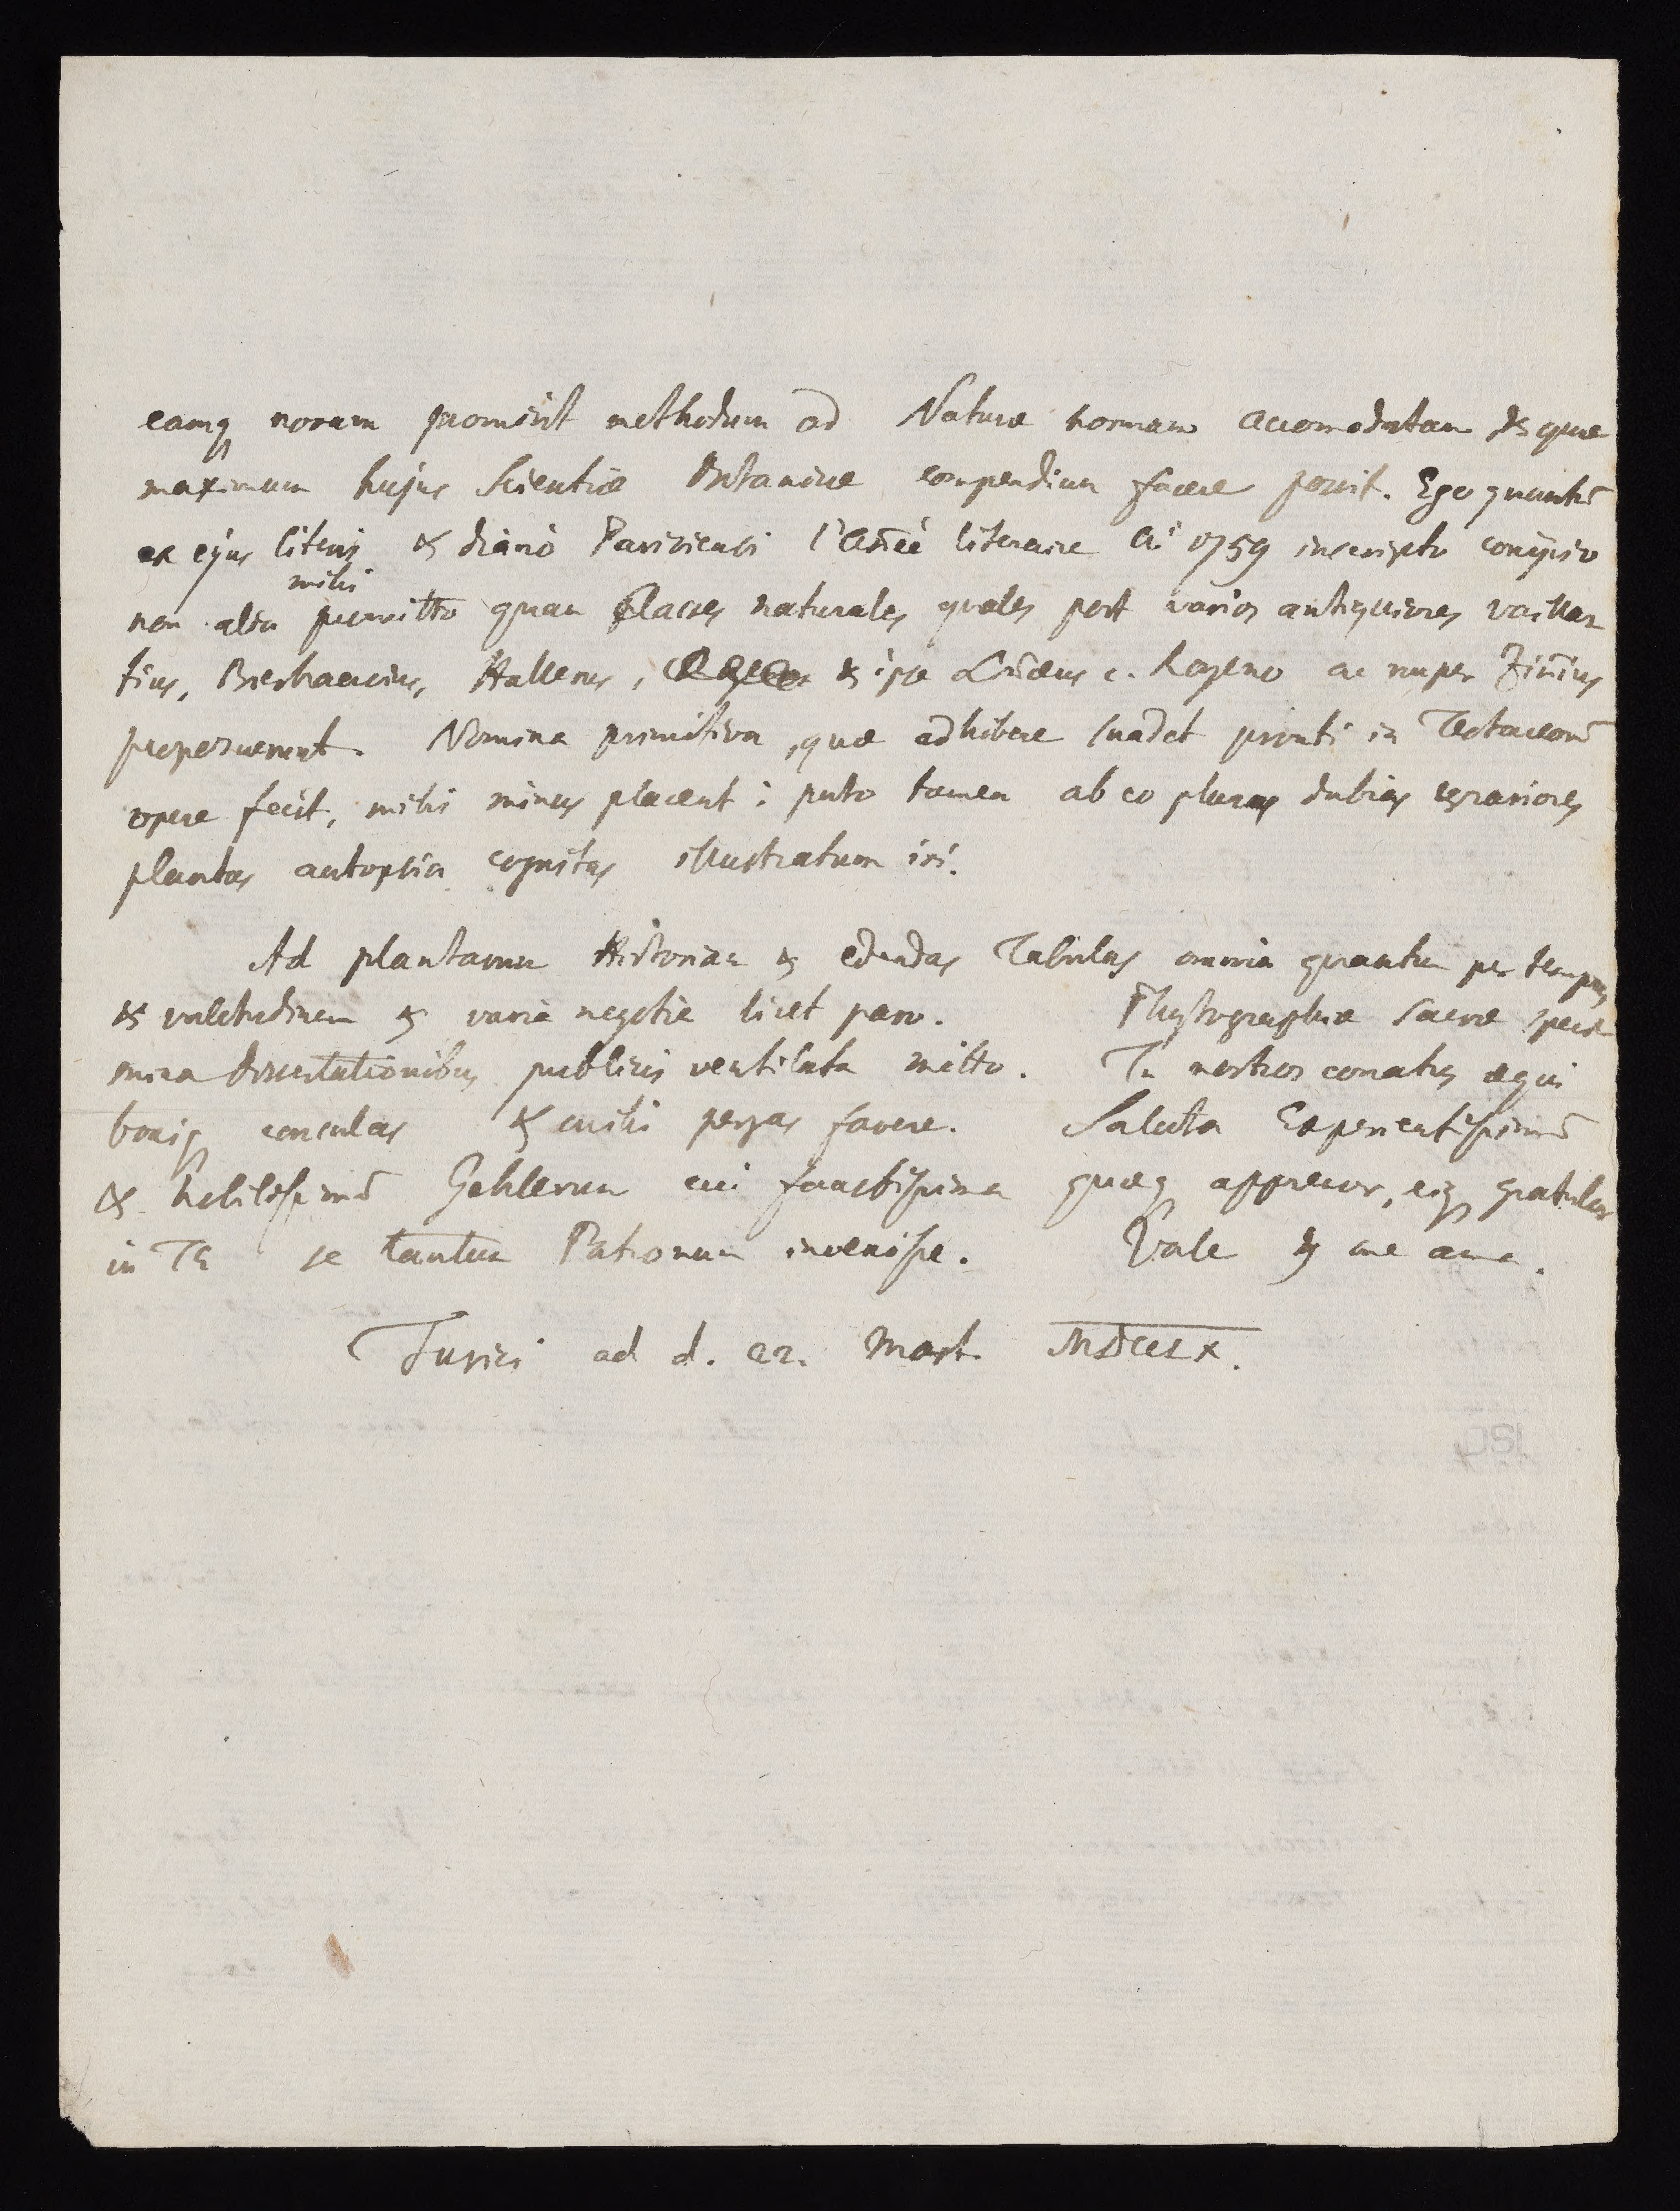 eamq novam promisit methodum ad Naturæ normam accomodatam & quæ
maximum hujus Scientiæ Botanicæ compendium facere possit. Ego quantū
ex ejus literis & diario Parisiensi l'Année literaire Ai 1759 inscripto conijcio
mihi
non alia promitto quam Classes naturales quales post varios antiquiores Vaillan
tius, Boerhaavius, Hallerus, & ipse Linæus c. Royeno ac nuper Zinnius
proposuerunt. Nomina primitiva, quæ adhibere suadet prouti in Testaceorū
opere fecit, mihi minus placent; puto tamen ab eo plures dubias & rariores
plantas autopsia cognitas illustratum iri.
Ad plantarum Historiam & edendas Tabulas omnia quantum per tempus
& valetudinem & varia negotia licet paro. Physiographiæ sacræ speci
mina dissertationibus publicis ventilata mitto. Tu nostros conatus æqui
boniq consulas & mihi pergas favere. Saluta Experientissimū
& Nobilissimū Gehlerum cui faustissima quæq apprecor, eiq gratulor
in Te se tantum Patronum invenisse. Vale & me ama.
Turici ad d. 22. Mart. MDCCLX.